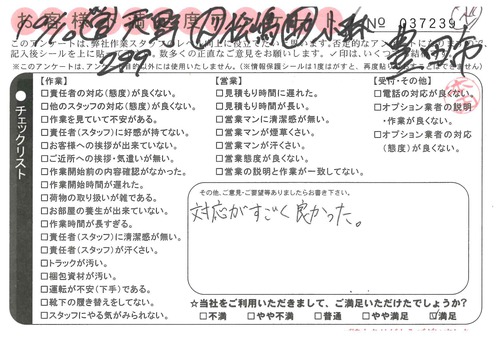 お客様
度
№ 037239
10/12
299
松崎
小林
このアンケートは、弊社作業スタッフ
※このアンケートは
目的以外には使用いたしません。（※情報保護シールは1度はがすと、再度貼り
チェックリスト
【作業】
□責任者の対応（態度）が良くない。
□他のスタッフの対応（態度）が良くない。
□作業を見ていて不安がある。
□責任者（スタッフ）に好感が持てない。
□お客様への挨拶が出来ていない。
□ご近所への挨拶・気遣いが無い。
□作業開始前の内容確認がなかった。
□作業開始時間が遅れた。
□荷物の取り扱いが雑である。
□お部屋の養生が出来ていない。
□作業時間が長すぎる。
□責任者（スタッフ）に清潔感が無い。
□責任者（スタッフ）が汗くさい。
□トラックが汚い。
□梱包資材が汚い。
□運転が不安（下手）である。
□靴下の履き替えをしてない。
□スタッフにやる気がみられない。
【営業】
□見積もり時間に遅れた。
□見積もり時間が長い。
□営業マンに清潔感が無い。
□営業マンが煙草くさい。
□営業マンが汗くさい。
□営業態度が良くない。
□営業の説明と作業が一致してない。
【受付・その他】
□電話の対応が良くない。
□オプション業者の説明
・作業が良くない。
□オプション業者の対応
（態度）が良くない。
その他、ご意見・ご要望等ありましたらお書き下さい。
対応がすごく良かった。
☆当社をご利用いただきまして、ご満足いただけたでしょうか？
□不満 □やや不満 □普通 □やや満足 ☑満足